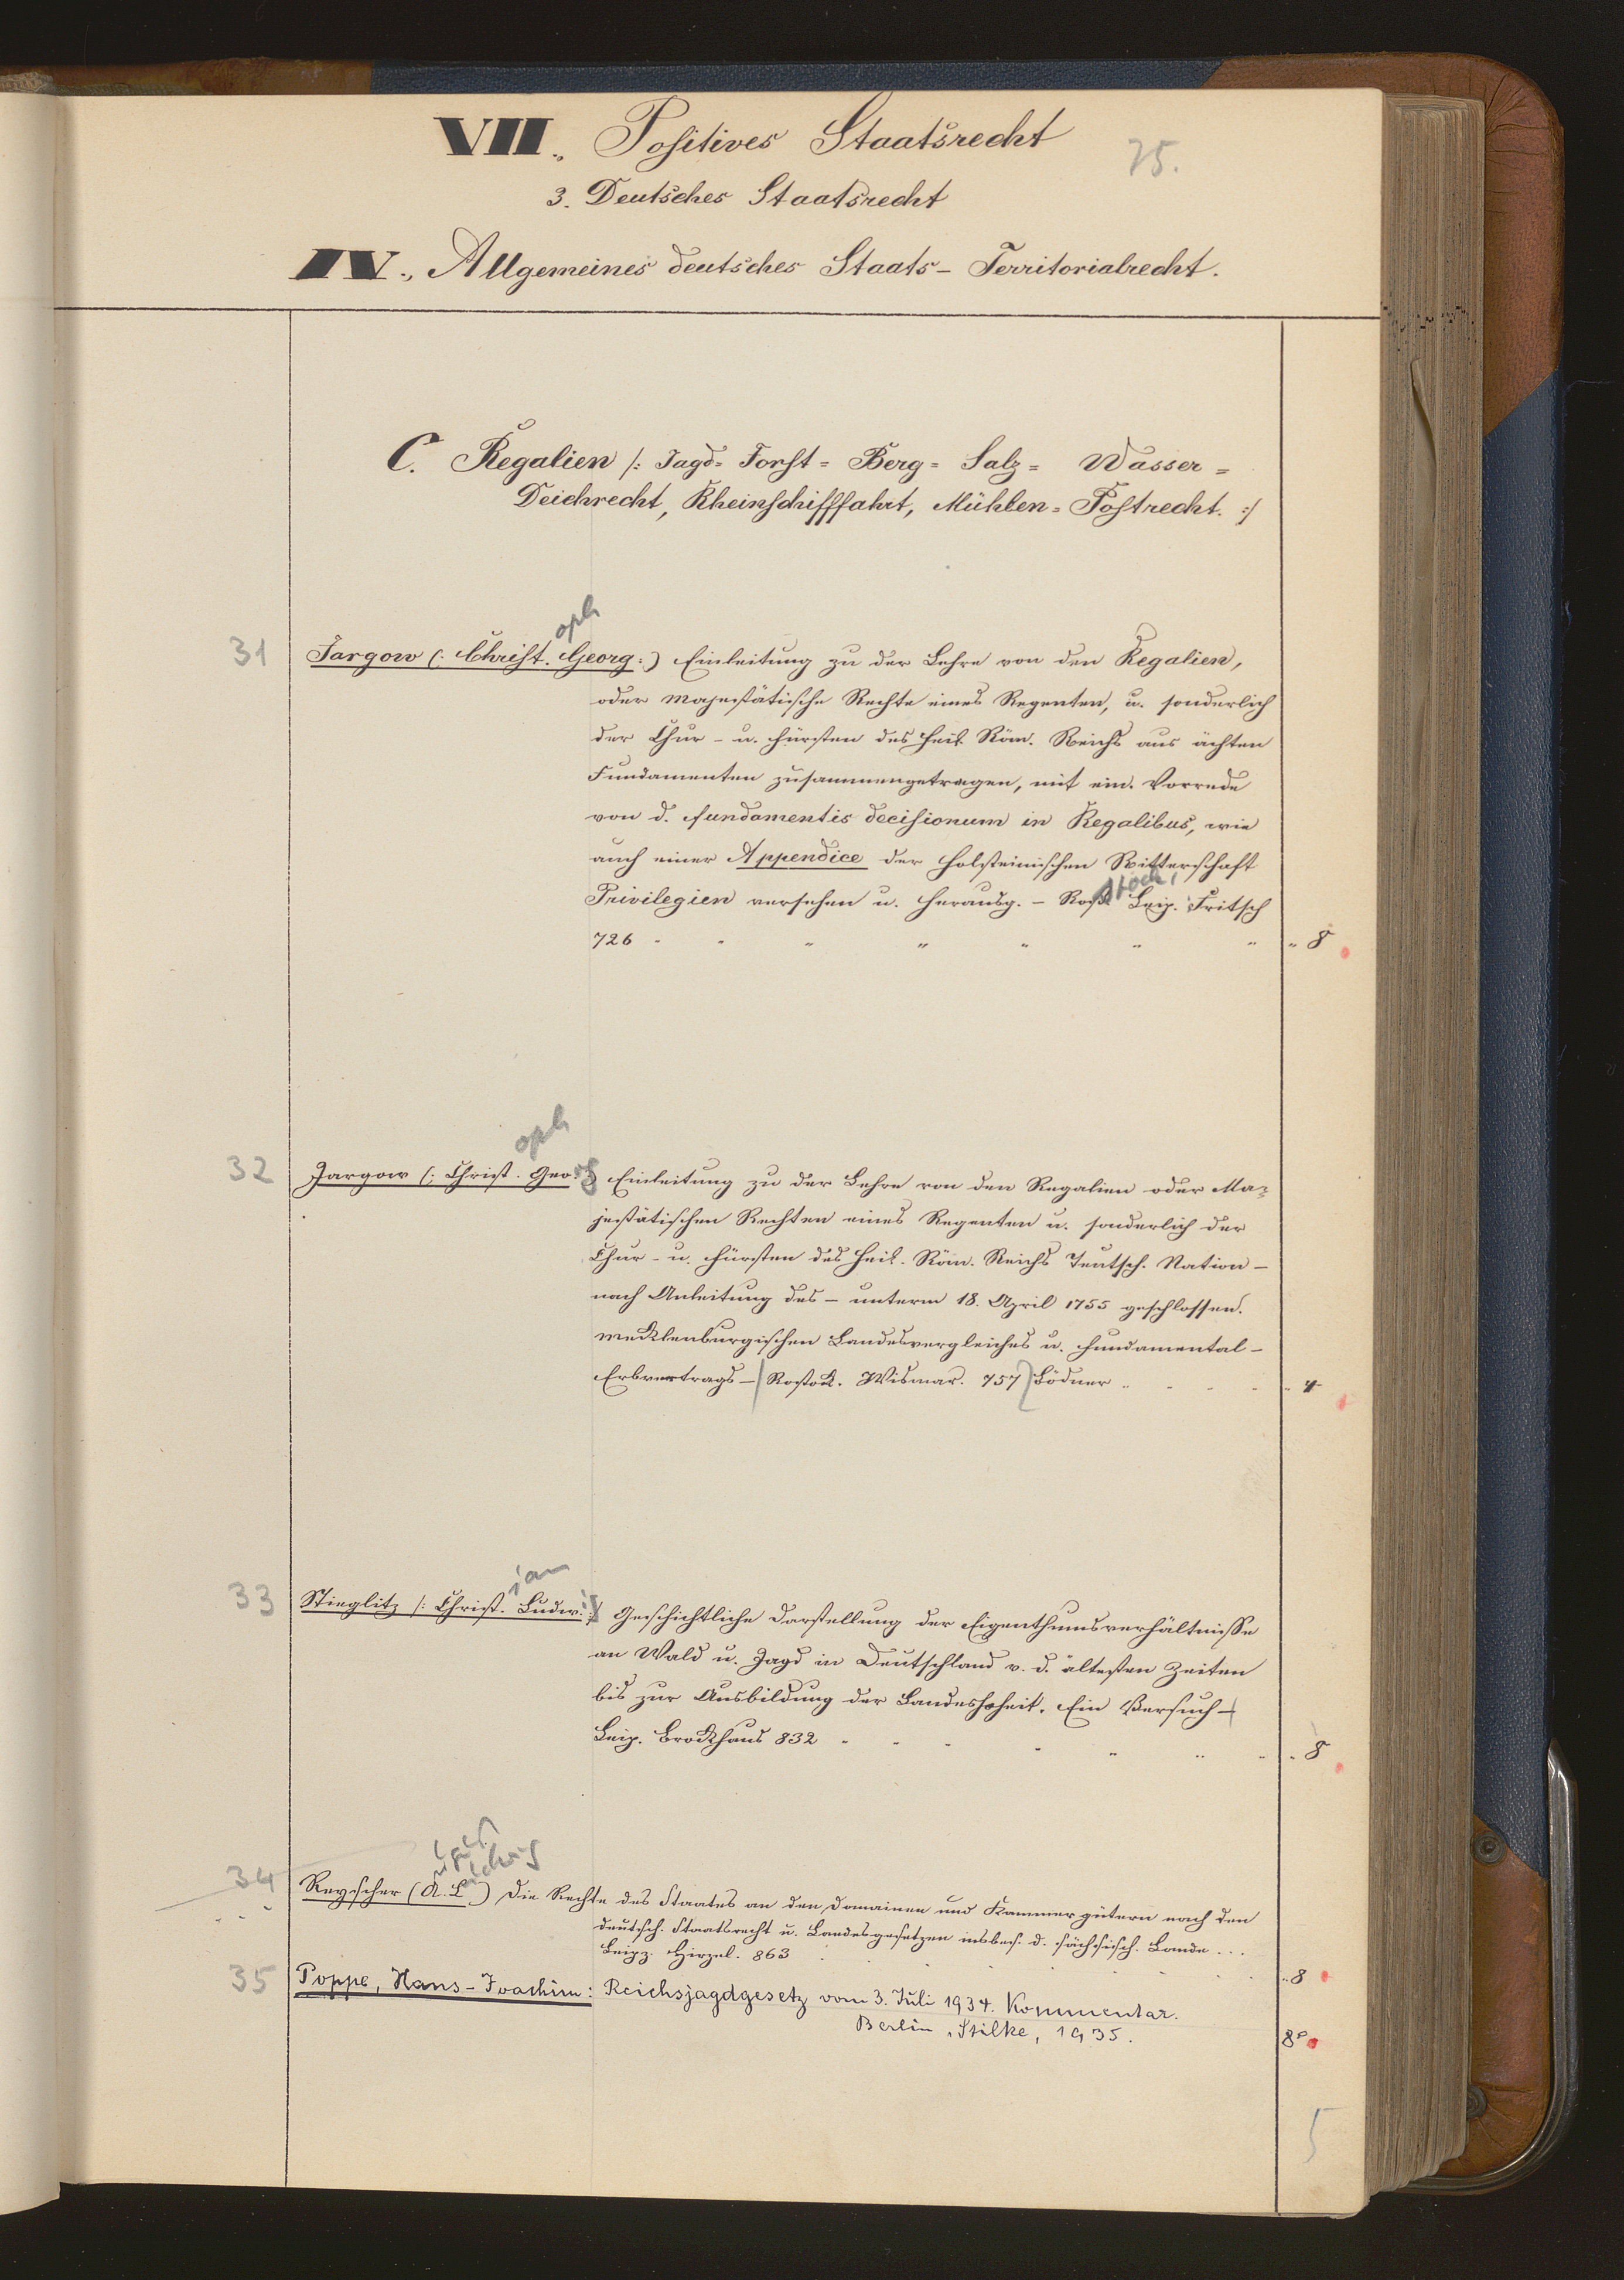 VII. Positives Staatsrecht
75.
3. Deutsches Staatsrecht
IV., Allgemeines deutsches Staats- Territorialrecht.
C. Regalien /: Jagd= Forst= Berg= Salz= Wasser=
Deichrecht, Rheinschifffahrt, Mühlen= Postrecht. :/
oph
31 Jargow (: Christ. Georg:) Einleitung zu der Lehre von den Regalien,
oder Majestätische Rechte eines Regenten, u. sonderlich
der Chur- u. Fürsten des Heil. Röm. Reichs aus ächten
Fundamenten zusammengetragen, mit ein. Vorrede
von d. fundamentis decisionum in Regalibus, wie
auch einer Appendice der Holsteinischen Ritterschaft
Privilegien versehen u. herausg. - Rostock, Leip. Fritsch
726 " " " " " " " " 8
oph
32 Jargow (: Christ. Georg Einleitung zu der Lehre von den Regalien oder Ma=
jestätischen Rechten eines Regenten u. sonderlich der
Chur- u. Fürsten des Heil. Röm. Reichs Teutsch. Nation -
nach Anleitung des - unterm 18. April 1755 geschlossen.
mecklenburgischen Landesvergleiches u. Fundamental-
Erbvertrags - (Rostock. Wismar. 757) Bödner " 4
ian
33 Stieglitz /: Christ. Ludw. :/ Geschichtliche Darstellung der Eigenthumsverhältnisse
an Wald u. Jagd in Deutschland v. d. ältesten Zeiten
bis zur Ausbildung der Landeshoheit. Ein Versuch -
Leip. Brockhaus 832 " " " " " " " " 8
34 Reyscher (A. L.) Die Rechte des Staates an den Domainen und Kammergütern nach dem
deutsch. Staatsrecht u. Landesgesetzen insbes. d. sächsisch. Lande ...
Leipz. Hirzel. 863 " 8
35 Poppe, Hans-Joachim: Reichsjagdgesetz vom 3. Juli 1934. Kommentar.
Berlin, Stilke, 1935. 8°
5